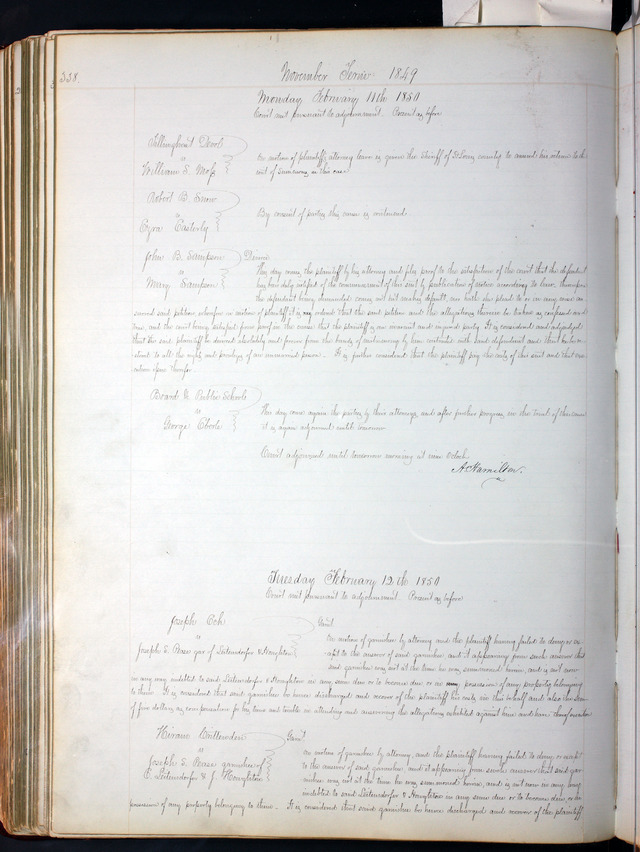 338.
November Term 1849
Monday February 11th 1850
Court met pursuant to adjournment. Present as before
Tillinghast Devol
vs
William S. Moss
On motion of plaintiffs attorney leave is given the Sheriff of St Louis county to amend his return to the
writ of summons in this case
Robert B. Snow
vs
Ezra Easterly
By consent of parties this cause is continued
John B. Sampson
vs
Mary Sampson
Divorce
This day comes the plaintiff by his attorney and files proof to the satisfaction of the court that the defendant
has been duly notified of the commencement of this suit by publication of notice according to law, thereupon
the defendant being demanded comes not but makes default, nor hath she plead to or in any wise an-
swered said petition wherefore on motion of plaintiff it is ordered that the said petition and the allegations thereof be taken as confessed and
true, and the court being satisfied from proof in the cause that the plaintiff is an innocent and injured party. It is considered and adjudged
that the said plaintiff be divorced absolutely and forever from the bonds of matrimony by him contracted with said defendant and that he be re-
stored to all the rights and privileges of an unmarried person. It is further considered that the plaintiff pay the costs of this suit and that exe-
cution issue therefor
Board of Public Schools
vs
George
This day come again the parties by their attorneys and after further progress in the trial of this cause
it is again adjourned until tomorrow
Court adjourned until tomorrow morning at nine Oclock
A Hamilton.
Tuesday February 12th 1850
Court met pursuant to adjournment. Present as before
Joseph
vs
Joseph S. Pease gar of Leitensdorfer & Houghton
Garnt
On motion of garnishee by attorney and the plaintiff having failed to deny or ex-
cept to the answer of said garnishee and it appearing from such answer that
said garnishee was not at the time he was summoned herein, and is not now
in any way indebted to said Leitensdorfer & Houghton in any sum due or to become due or in possession of any property belonging
to them. It is considered that said garnishee be hence discharged and recover of the plaintiff his costs in this behalf and also the sum
of five dollars as compensation for his time and trouble in attending and answering the allegations exhibited against him and have thereof execution
Hiram
vs
Joseph S. Pease garnishee of
E. Leitensdorfer & J. Houghton
Garnt
On motion of garnishee by attorney, and the plaintiff having failed to deny or except
to the answer of said garnishee, and it appearing from such answer that said gar-
nishee was not at the time he was summoned herein, and is not now in any way
indebted to said Leitensdorfer & Houghton in any sum due or to become due or in
possession of any property belonging to them. It is considered that said garnishee be hence discharged and recover of the plaintiff